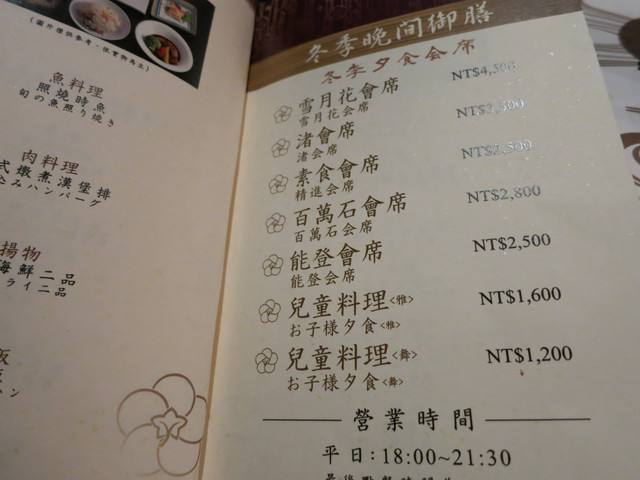 (圖片僅供參考,依實物為主)
魚料理
照燒時魚
旬の魚照り焼き
肉料理
式燉煮漢堡排
込みハンバーグ
揚物
海鮮二品
ライ二品
冬季晚間御膳
冬季夕食会席
雪月花會席 NT$4,500
雪月花会席
渚會席
渚会席
素食會席 NT$2,500
精進会席
百萬石會席 NT$2,800
百萬石会席
能登會席 NT$2,500
能登会席
兒童料理<雅> NT$1,600
お子様夕食<雅>
兒童料理<舞> NT$1,200
お子様夕食<舞>
營業時間
平日:18:00~21:30